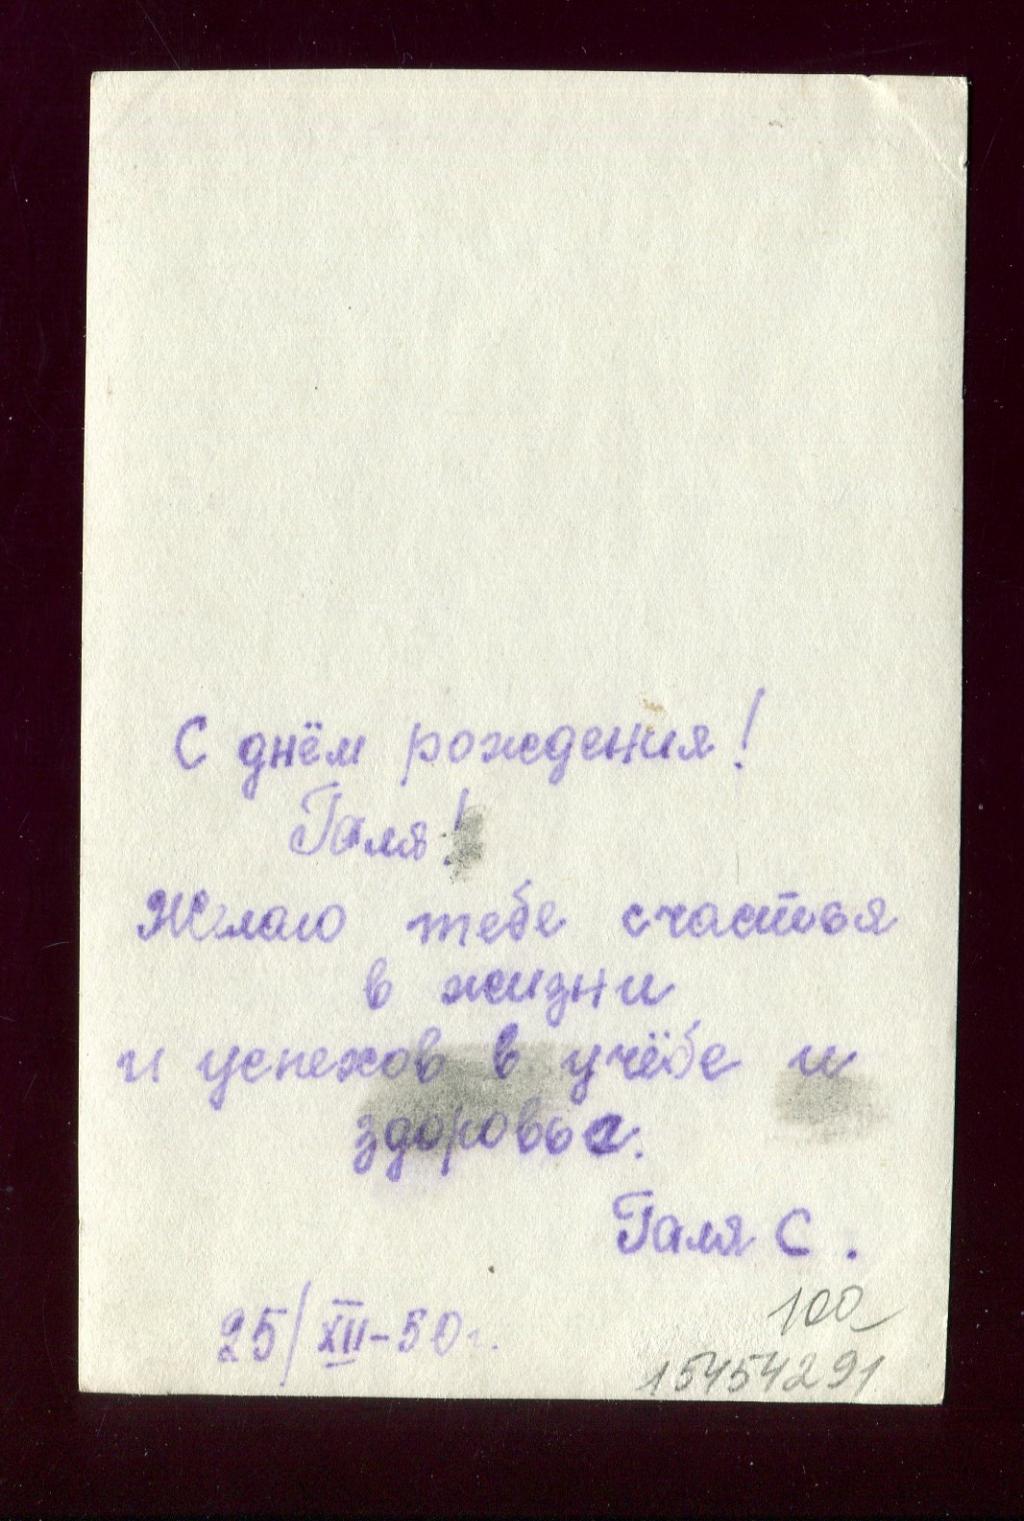 С днём рождения!
Галя!
Желаю тебе счастья
в жизни
и успехов в учёбе и
здоровье.
Галя С.
25/XII-50г.
100
15454291